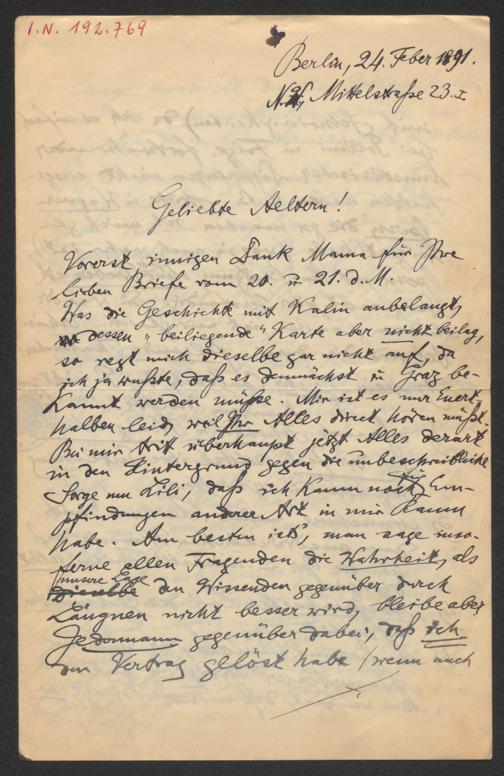 I.N. 192.769
Berlin, 24. Feber 1891.
Mittelstraße 23. I
Geliebte Aeltern!
Vorerst innigen Dank Mama für Ihre
lieben Briefe vom 20. u 21. d. M.
Was die Geschichte mit Kalin anbelangt,
dessen "beiliegende" Karte aber nicht beilag,
so regt mich dieselbe gar nicht auf, da
ich ja wußte, daß es demnächst in Graz be-
kannt werden müsse. Mir ist es nur Euert-
halben leid, weil Ihr Alles direct hören müßt.
Bei mir tritt überhaupt jetzt Alles derart
in den Hintergrund gegen die unbeschreibliche
Sorge um Lili, daß ich kaum noch Em-
pfindungen anderer Art in mir Raum
habe. Am besten ist's, man sage inso-
ferne allen Fragenden die Wahrheit, als
unsere Lage
dieselbe den Wissenden gegenüber durch
Läugnen nicht besser wird, bleibe aber
Jedermann gegenüber dabei, daß ich
den Vertrag gelöst habe (wenn auch